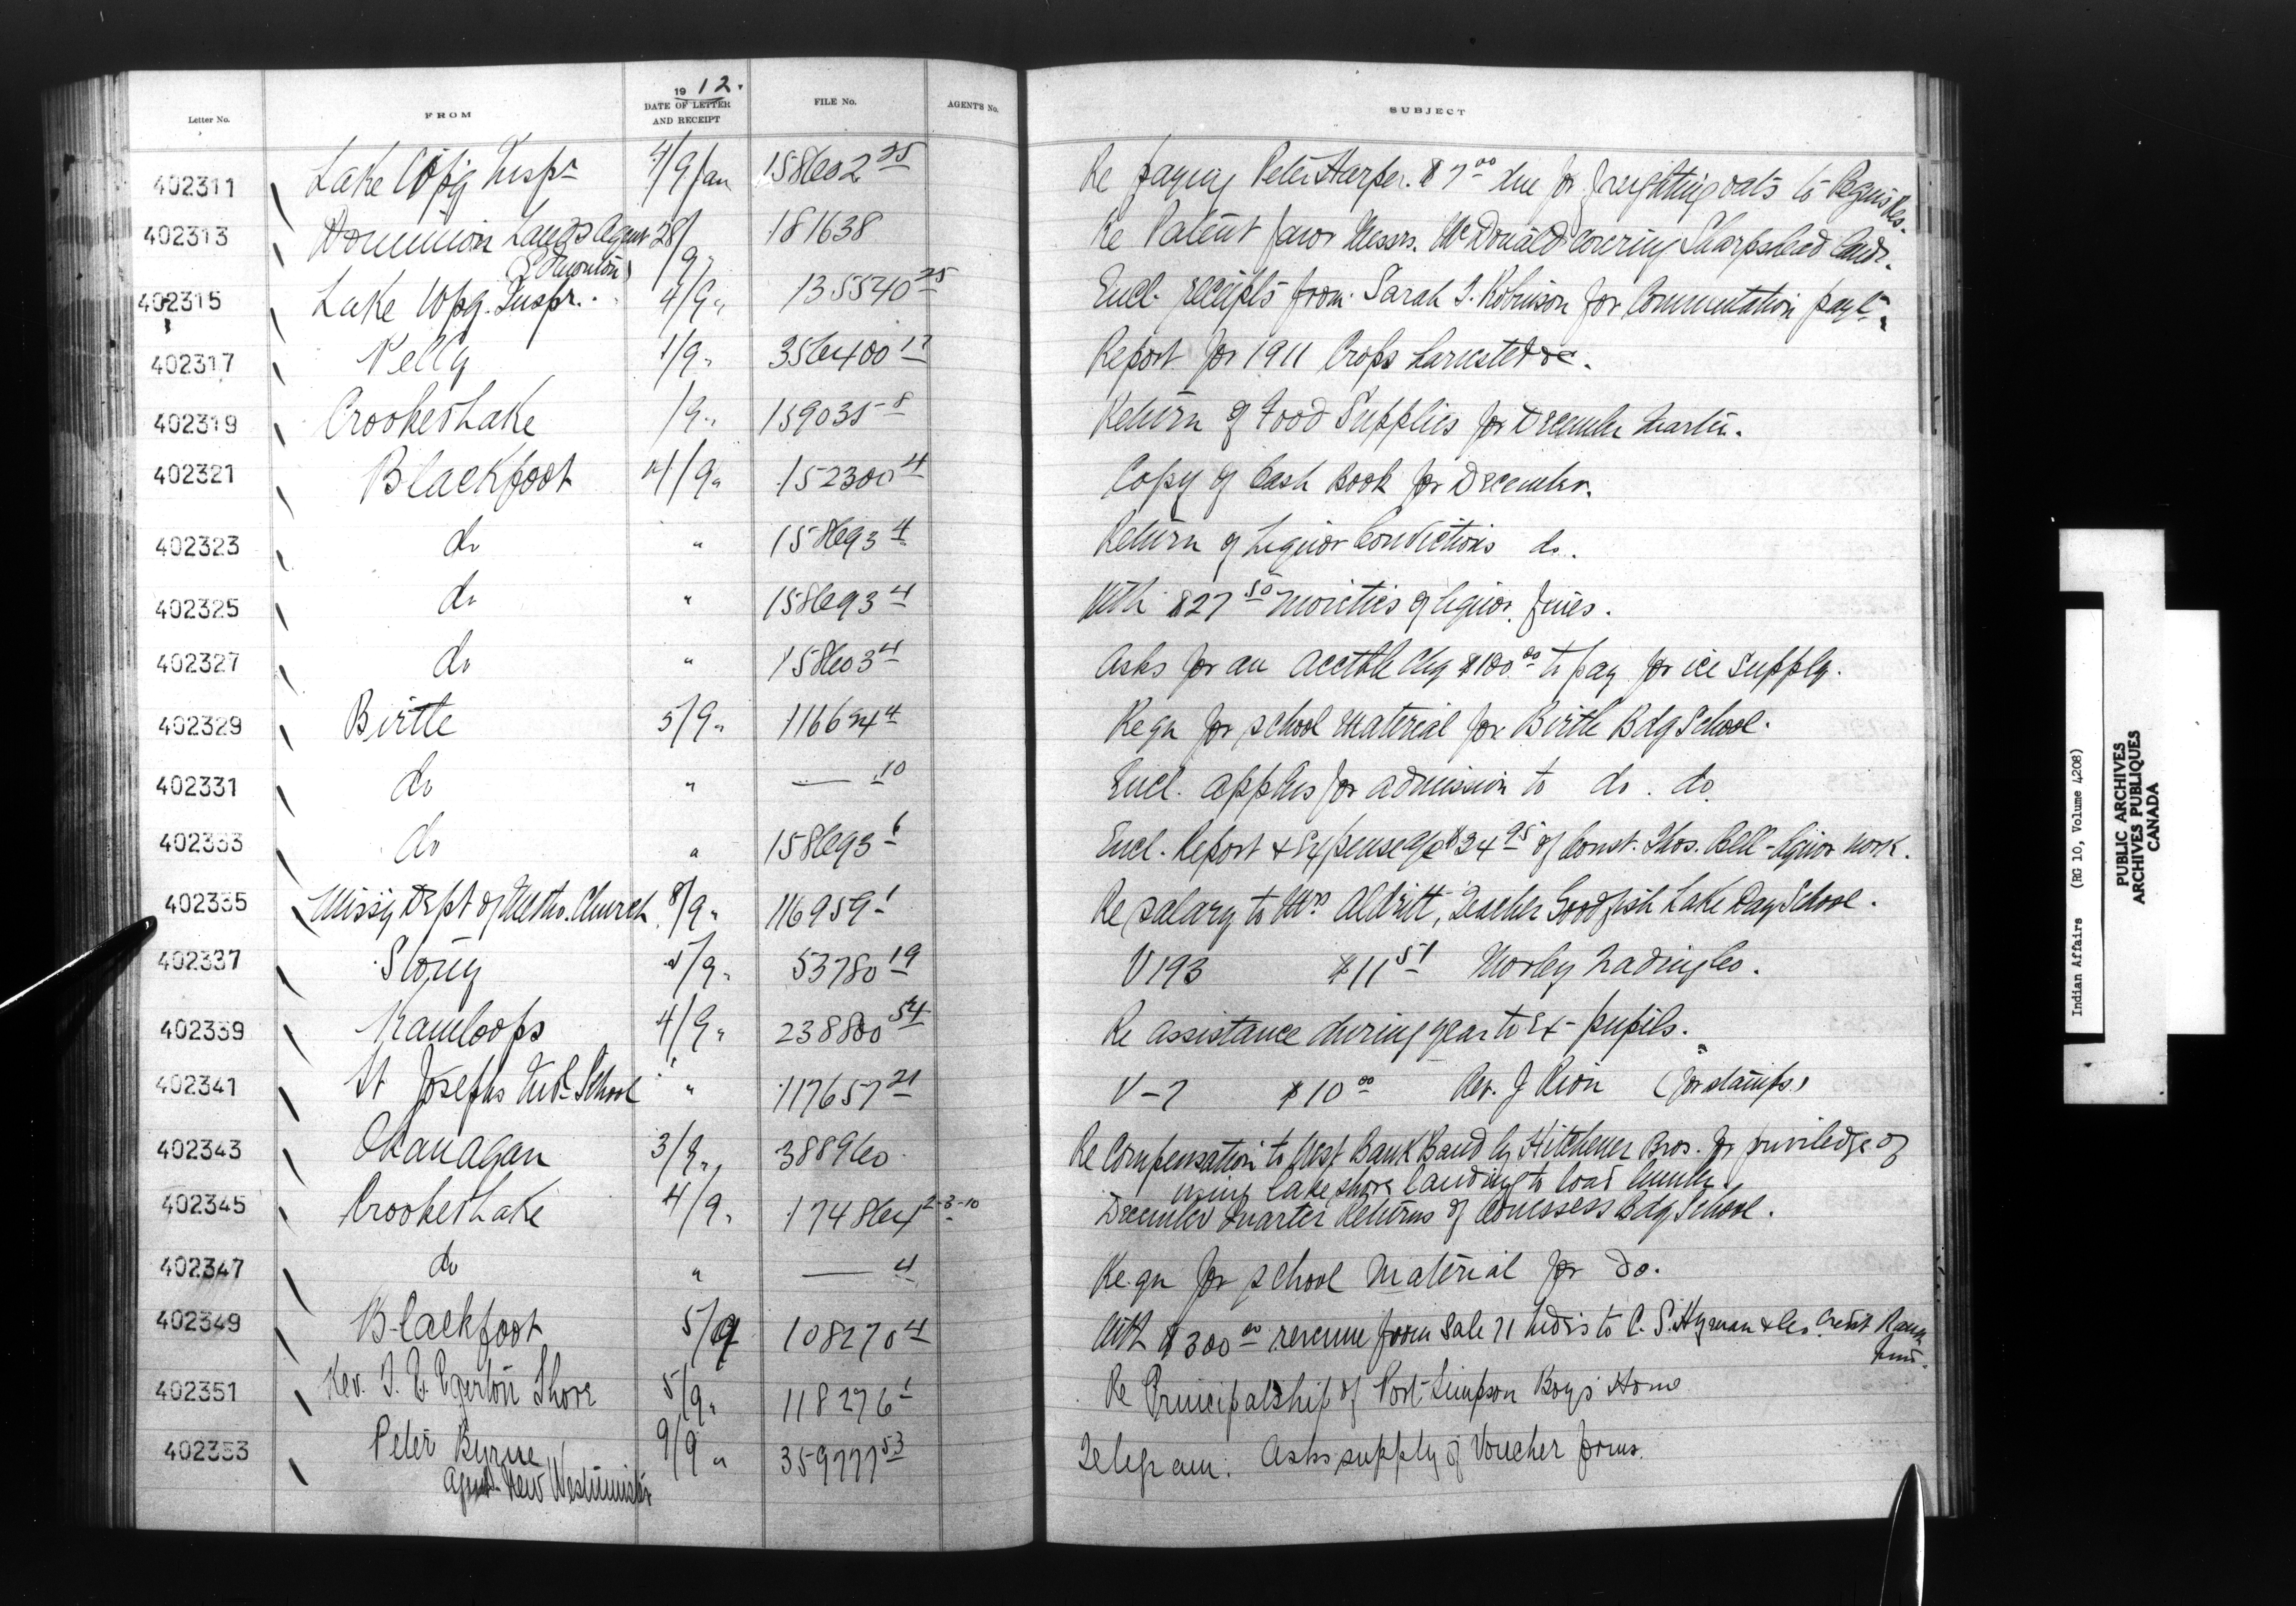 1912.
Letter No. FROM DATE OF LETTER AND RECEIPT FILE No. AGENT'S No. SUBJECT
402311 Lake Wpg Inspr 4/9 Jan 158602 25 Re paying Peter Harper. $7 00 due for freighting oats to Peguis Res.
402313 Dominion Lands Agent 28/9 " 181638 Re Patent favor Messrs. McDonald covering Sharpshead land.
(Edmonton)
402315 Lake Wpg. Inspr. 4/9 " 135540 25 Encl. receipts from Sarah J. Robinson for Commutation payt.
402317 Pelly 1/9 " 356400 17 Report for 1911 Crops harvested &c.
402319 Crooked Lake /9 " 159035 8 Return of Food Supplies for December Quarter.
402321 Blackfoot 4/9 " 152300 4 Copy of Cash Book for December.
402323 do " 158693 4 Return of Liquor Convictions do.
402325 do " 158693 4 With $27 50 moieties of liquor fines.
402327 do " 158603 4 Asks for an acctble chq $100 00 to pay for ice supply.
402329 Birtle 5/9 " 116624 4 Reqn for school material for Birtle Bdg School.
402331 do " — 10 Encl. applns for admission to do. do.
402333 do " 158693 6 Encl. Report & Expense a/c $34 95 of Const. Thos. Bell - liquor work.
402335 Missy Dept of Metho. Church 8/9 " 116959 1 Re salary to Mrs Aldritt, Teacher Goodfish Lake Day School.
402337 Stony 5/9 " 53780 19 V 193 $11 51 Morley Trading Co.
402339 Kamloops 4/9 " 238800 54 Re assistance during year to ex-pupils.
402341 St Josephs Indl School " 117657 21 V-7 $10 00 Rev. J Rion (for stamps)
402343 Okanagan 3/9 " 388960 Re Compensation to West Bank Band by Hitchener Bros. for priviledge of
using lake shore landing to load lumber.
402345 Crooked Lake 4/9 " 174864 2-3-10 December Quarter Returns of Cowessess Bdg School.
402347 do " — 4 Reqn for school material for do.
402349 Blackfoot 5/9 108270 4 With $300 00 revenue from Sale 71 hides to C. S. Hyman & Co. Credit
402351 Rev. T. E. Egerton Shore 5/9 " 118276 1 Re Principalship of Port Simpson Boys Home
402353 Peter Byrne 9/9 " 359777 53 Telegram. Asks supply of Voucher forms.
Agent - New Westminster
Indian Affairs (RG 10, Volume 4208)
PUBLIC ARCHIVES
ARCHIVES PUBLIQUES
CANADA